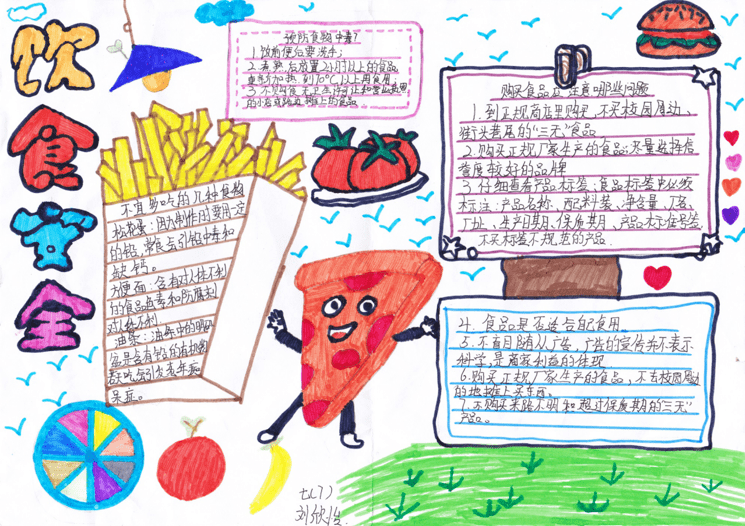 饮
食
安
全
预防食物中毒?
1.饭前便后要洗手;
2.煮熟后放置2小时以上的食品,
重新加热到70℃以上再食用
3.不购食无卫生许可证和营业执照
的小店或路边摊上的食品。
不宜多吃的几种食物
松花蛋:因为制作时要用一定
的铅,常食会引铅中毒和
缺钙。
方便面:含有对人体不利
的食品色素和防腐剂
对人体不利
油条:油条中的明矾
多吃会引发老年痴
呆症。
购买食品应注意哪些问题
1.到正规商店里购买,不买校园周边、
街头巷尾的“三无”食品
2.购买正规厂家生产的食品,尽量选择信
誉度较好的品牌
3.仔细查看产品标签:食品标签中必须
标注:产品名称、配料表、净含量、厂名、
厂址、生产日期、保质期、产品标准号等
不买标签不规范的产品.
4.食品是否适合自己食用.
5.不盲目随从广告,广告的宣传并不表示
科学,是商家利益的体现
6.购买正规厂家生产的食品,不去校园周边
的地摊上买东西。
7.不购买来路不明和超过保质期的“三无”
产品。
七(7)
刘欣